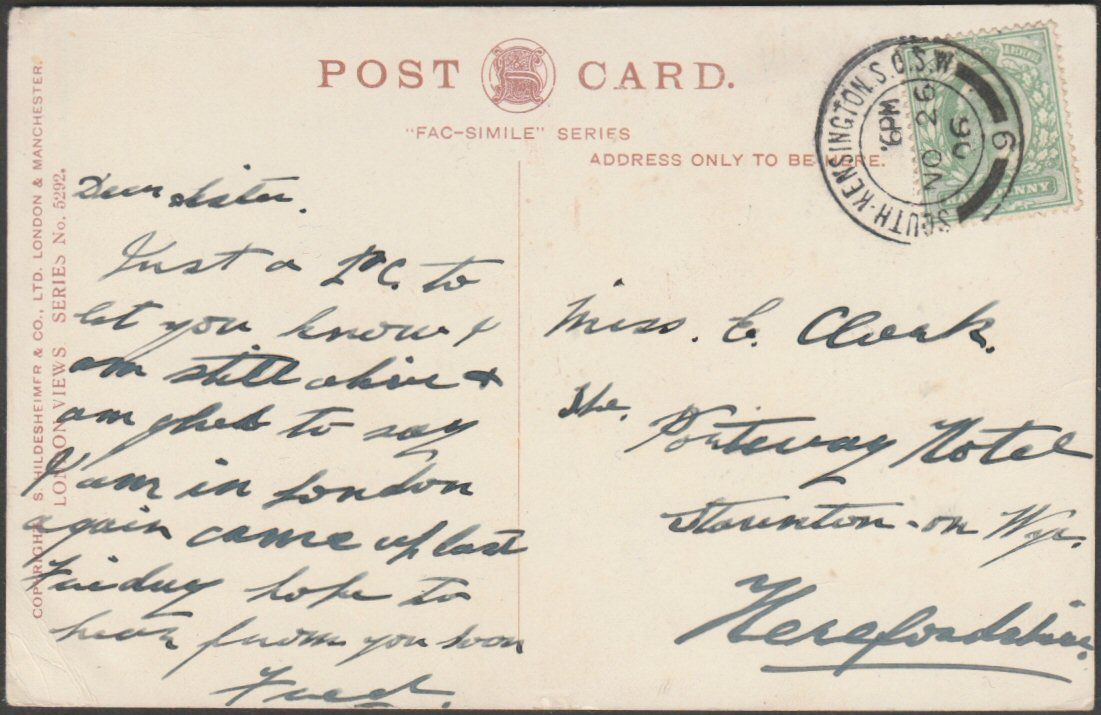 POST CARD.
"FAC-SIMILE" SERIES
ADDRESS ONLY TO BE HERE.
COPYRIGHT S. HILDESHEIMER & CO., LTD. LONDON & MANCHESTER.
LONDON VIEWS SERIES No. 5292.
SOUTH-KENSINGTON.S.O.S.W
6 PM
NO 26
06
6
PENNY
Dear Sister.
Just a PC. to
let you know I
am still alive &
am glad to say
I am in London
again came up last
Friday hope to
hear from you soon
Fred
Miss. E. Clark.
The.
Portway Hotel
Staunton-on Wye.
Herefordshire.